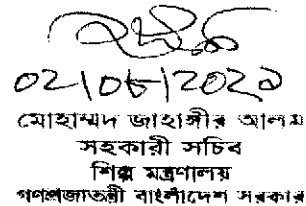 মোহাম্মদ জাহাঙ্গীর আলম
সহকারী সচিব
শিল্প মন্ত্রণালয়
গণপ্রজাতন্ত্রী বাংলাদেশ সরকার